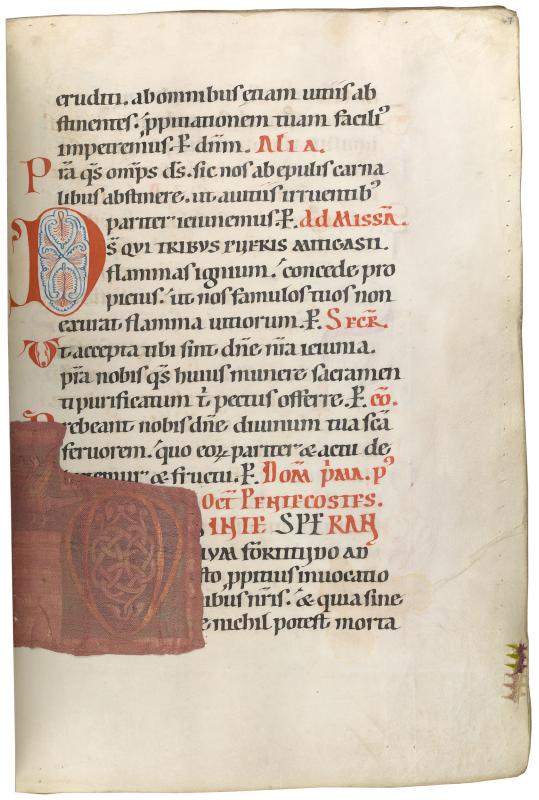 eruditi. ab omnibus etiam uitiis ab
stinentes. ꝓpitiationem tuam faciliꝰ
impetremus. P̄. dn̄m. Alia.
Pr̄a q̄s om̄ps d̄s. sic nos ab epulis carna
libus abstinere. ut auitiis irruentibꝰ
pariter ieiunemus. P̄. ad Missā.
Ds̄ QVI TRIBVS PVERIS MITIGASTI.
flammas ignium. concede pro
picius. ut nos famulos tuos non
exurat flamma uitiorum. P̄. Secr̄.
Ut accepta tibi sint dn̄e nr̄a ieiunia.
pr̄a nobis q̄s huius munere sacramen
ti purificatum t̄ pectus offerre. P̄. cō.
Prebeant nobis dn̄e diuinum tua sc̄a
feruorem. quo eoꝝ pariter & actu de
& fructu. P̄. Dom̄ p̄ma. pꝰ
Oct̄ Pentecostes.
IN TE SPERAN
IVM FORTITUDO AD
ꝓpitius inuocatio
ibus nr̄is. & quia sine
nichil potest morta